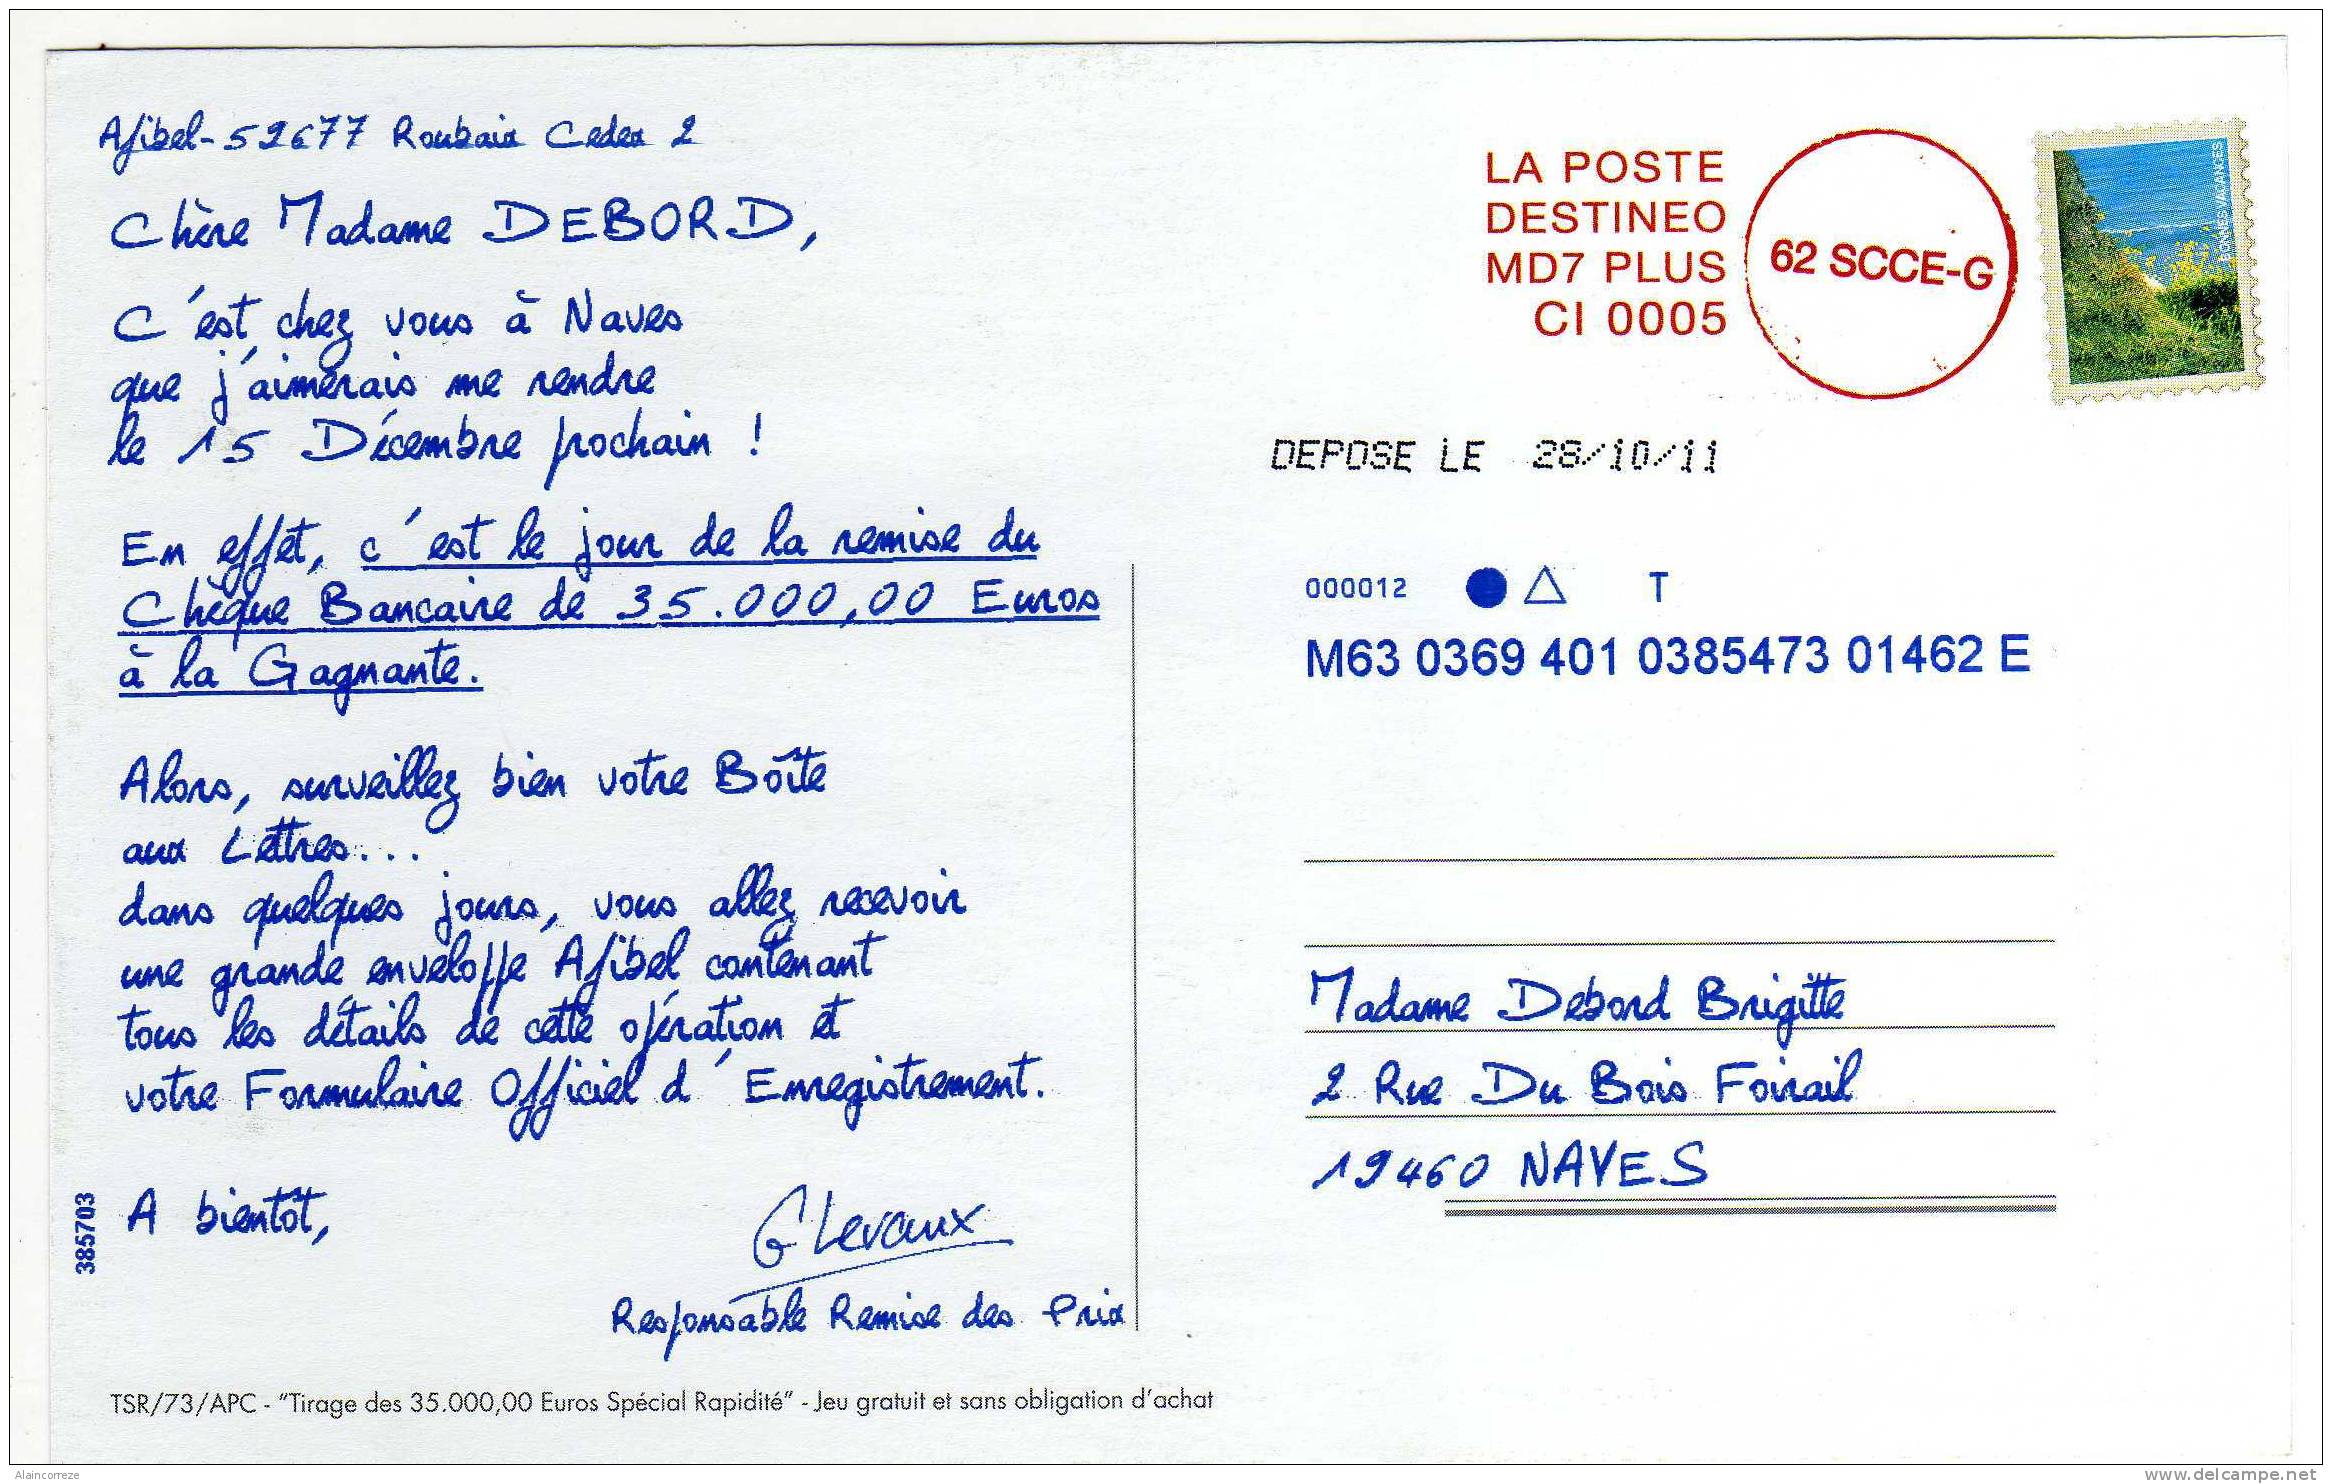 Afibel - 59677 Roubaix Cedex 2
Chère Madame DEBORD,
C'est chez vous à Naves
que j'aimerais me rendre
le 15 Décembre prochain !
En effet, c'est le jour de la remise du
Chèque Bancaire de 35.000,00 Euros
à la Gagnante.
Alors, surveillez bien votre Boîte
aux Lettres...
dans quelques jours, vous allez recevoir
une grande enveloppe Afibel contenant
tous les détails de cette opération et
votre Formulaire Officiel d'Enregistrement.
A bientôt,
G Levaux
Responsable Remise des Prix
385703
TSR/73/APC - "Tirage des 35.000,00 Euros Spécial Rapidité" - Jeu gratuit et sans obligation d'achat
LA POSTE
DESTINEO
MD7 PLUS
CI 0005
62 SCCE-G
BONNES VACANCES
DEPOSE LE 28/10/11
000012 T
M63 0369 401 0385473 01462 E
Madame Debord Brigitte
2 Rue Du Bois Foirail
19460 NAVES
Alaincorreze
www.delcampe.net